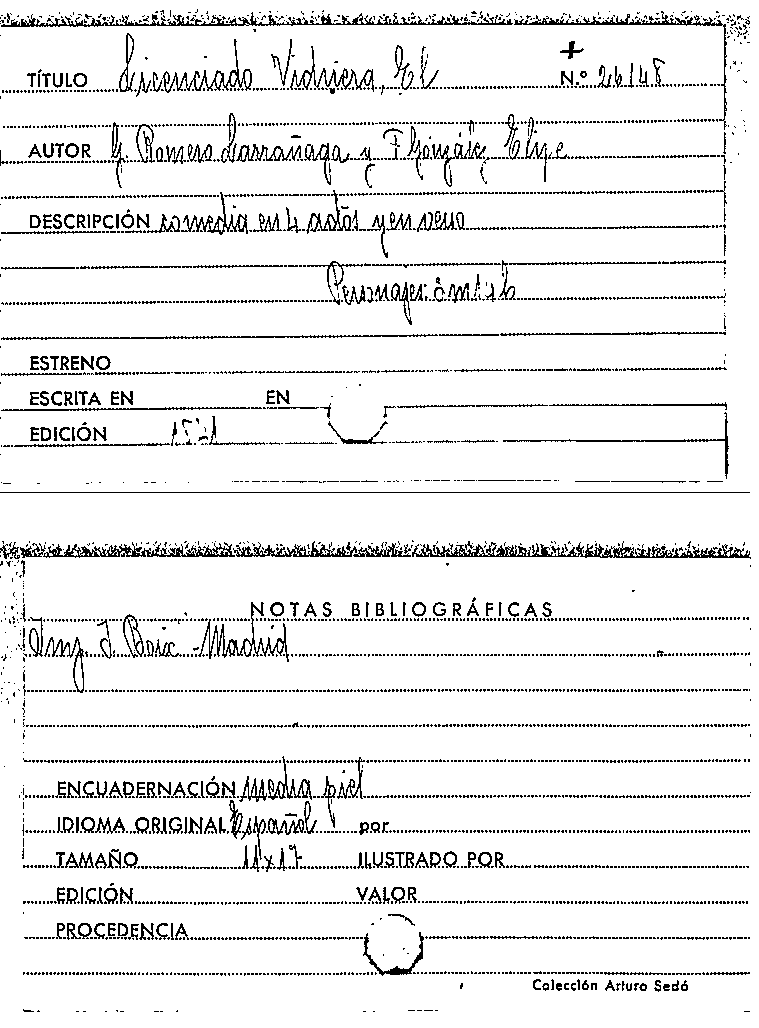 +
TÍTULO Licenciado Vidriera, El N.º 26148
AUTOR G. Romero Larrañaga y F González Elipe
DESCRIPCIÓN comedia en 4 actos y en verso
Personajes:
ESTRENO
ESCRITA EN EN
EDICIÓN
NOTAS BIBLIOGRÁFICAS
Imp. J. Boix - Madrid
ENCUADERNACIÓN media piel
IDIOMA ORIGINAL Español por
TAMAÑO 11x17 ILUSTRADO POR
EDICIÓN VALOR
PROCEDENCIA
Colección Arturo Sedó